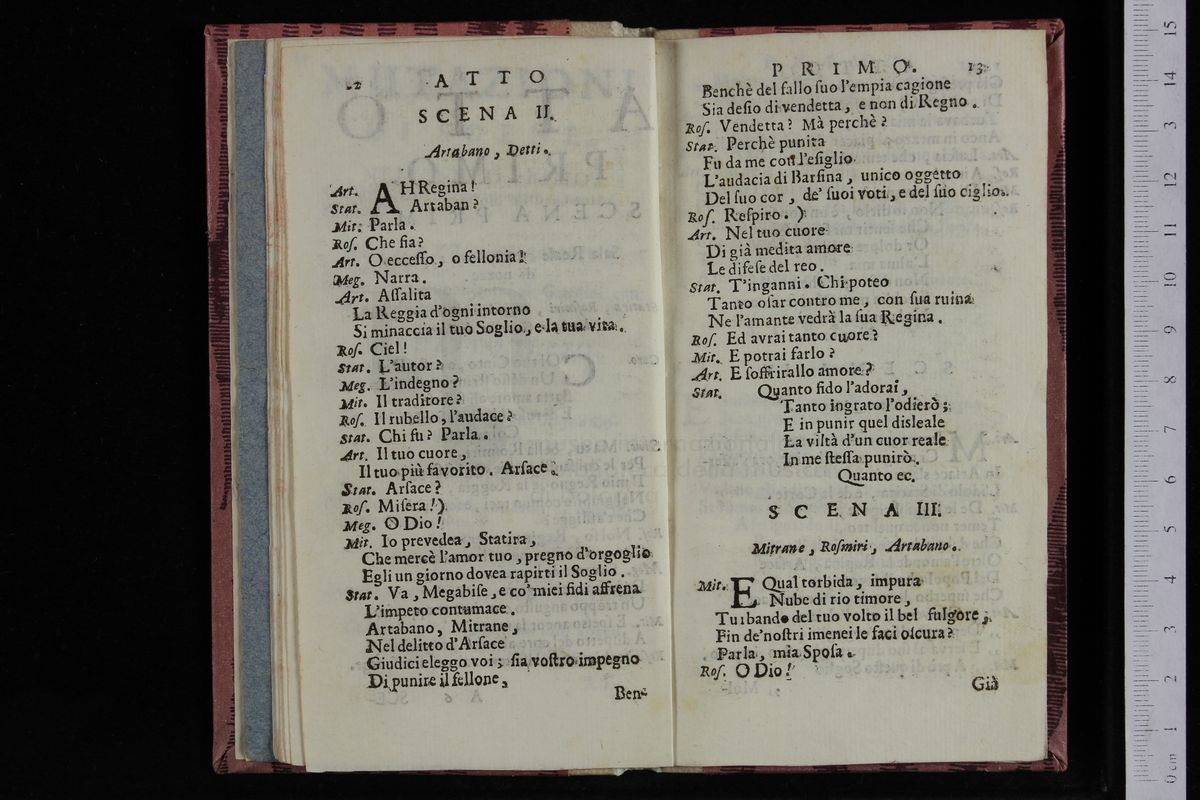 12 ATTO
SCENA II.
Artabano, Detti.
Art. AH Regina!
Stat. Artaban?
Mit. Parla.
Roſ. Che fia?
Art. O ecceſſo, o fellonia!
Meg. Narra.
Art. Aſſalita
La Reggia d'ogni intorno
Si minaccia il tuo Soglio, e la tua vita.
Roſ. Ciel!
Stat. L'autor?
Meg. L'indegno?
Mit. Il traditore?
Roſ. Il rubello, l'audace?
Stat. Chi fu? Parla.
Art. Il tuo cuore,
Il tuo più favorito. Arſace.
Stat. Arſace?
Roſ. Miſera!)
Meg. O Dio!
Mit. Io prevedea, Statira,
Che mercè l'amor tuo, pregno d'orgoglio
Egli un giorno dovea rapirti il Soglio.
Stat. Va, Megabiſe, e co' miei fidi affrena
L'impeto contumace.
Artabano, Mitrane,
Nel delitto d'Arſace
Giudici eleggo voi; ſia voſtro impegno
Di punire il fellone,
Ben-
PRIMO. 13
Benchè del fallo ſuo l'empia cagione
Sia deſio di vendetta, e non di Regno.
Roſ. Vendetta? Mà perchè?
Stat. Perchè punita
Fu da me con l'eſiglio
L'audacia di Barſina, unico oggetto
Del ſuo cor, de' ſuoi voti, e del ſuo ciglio.
Roſ. Reſpiro.)
Art. Nel tuo cuore
Di già medita amore
Le difeſe del reo.
Stat. T'inganni. Chi poteo
Tanto oſar contro me, con ſua ruina
Ne l'amante vedrà la ſua Regina.
Roſ. Ed avrai tanto cuore?
Mit. E potrai farlo?
Art. E ſoffrirallo amore?
Stat. Quanto fido l'adorai,
Tanto ingrato l'odierò;
E in punir quel disleale
La viltà d'un cuor reale
In me ſteſſa punirò.
Quanto ec.
SCENA III.
Mitrane, Roſmiri, Artabano.
Mit. E Qual torbida, impura
Nube di rio timore,
Turbando del tuo volto il bel fulgore,
Fin de' noſtri imenei le faci oſcura?
Parla, mia Spoſa.
Roſ. O Dio!
Già